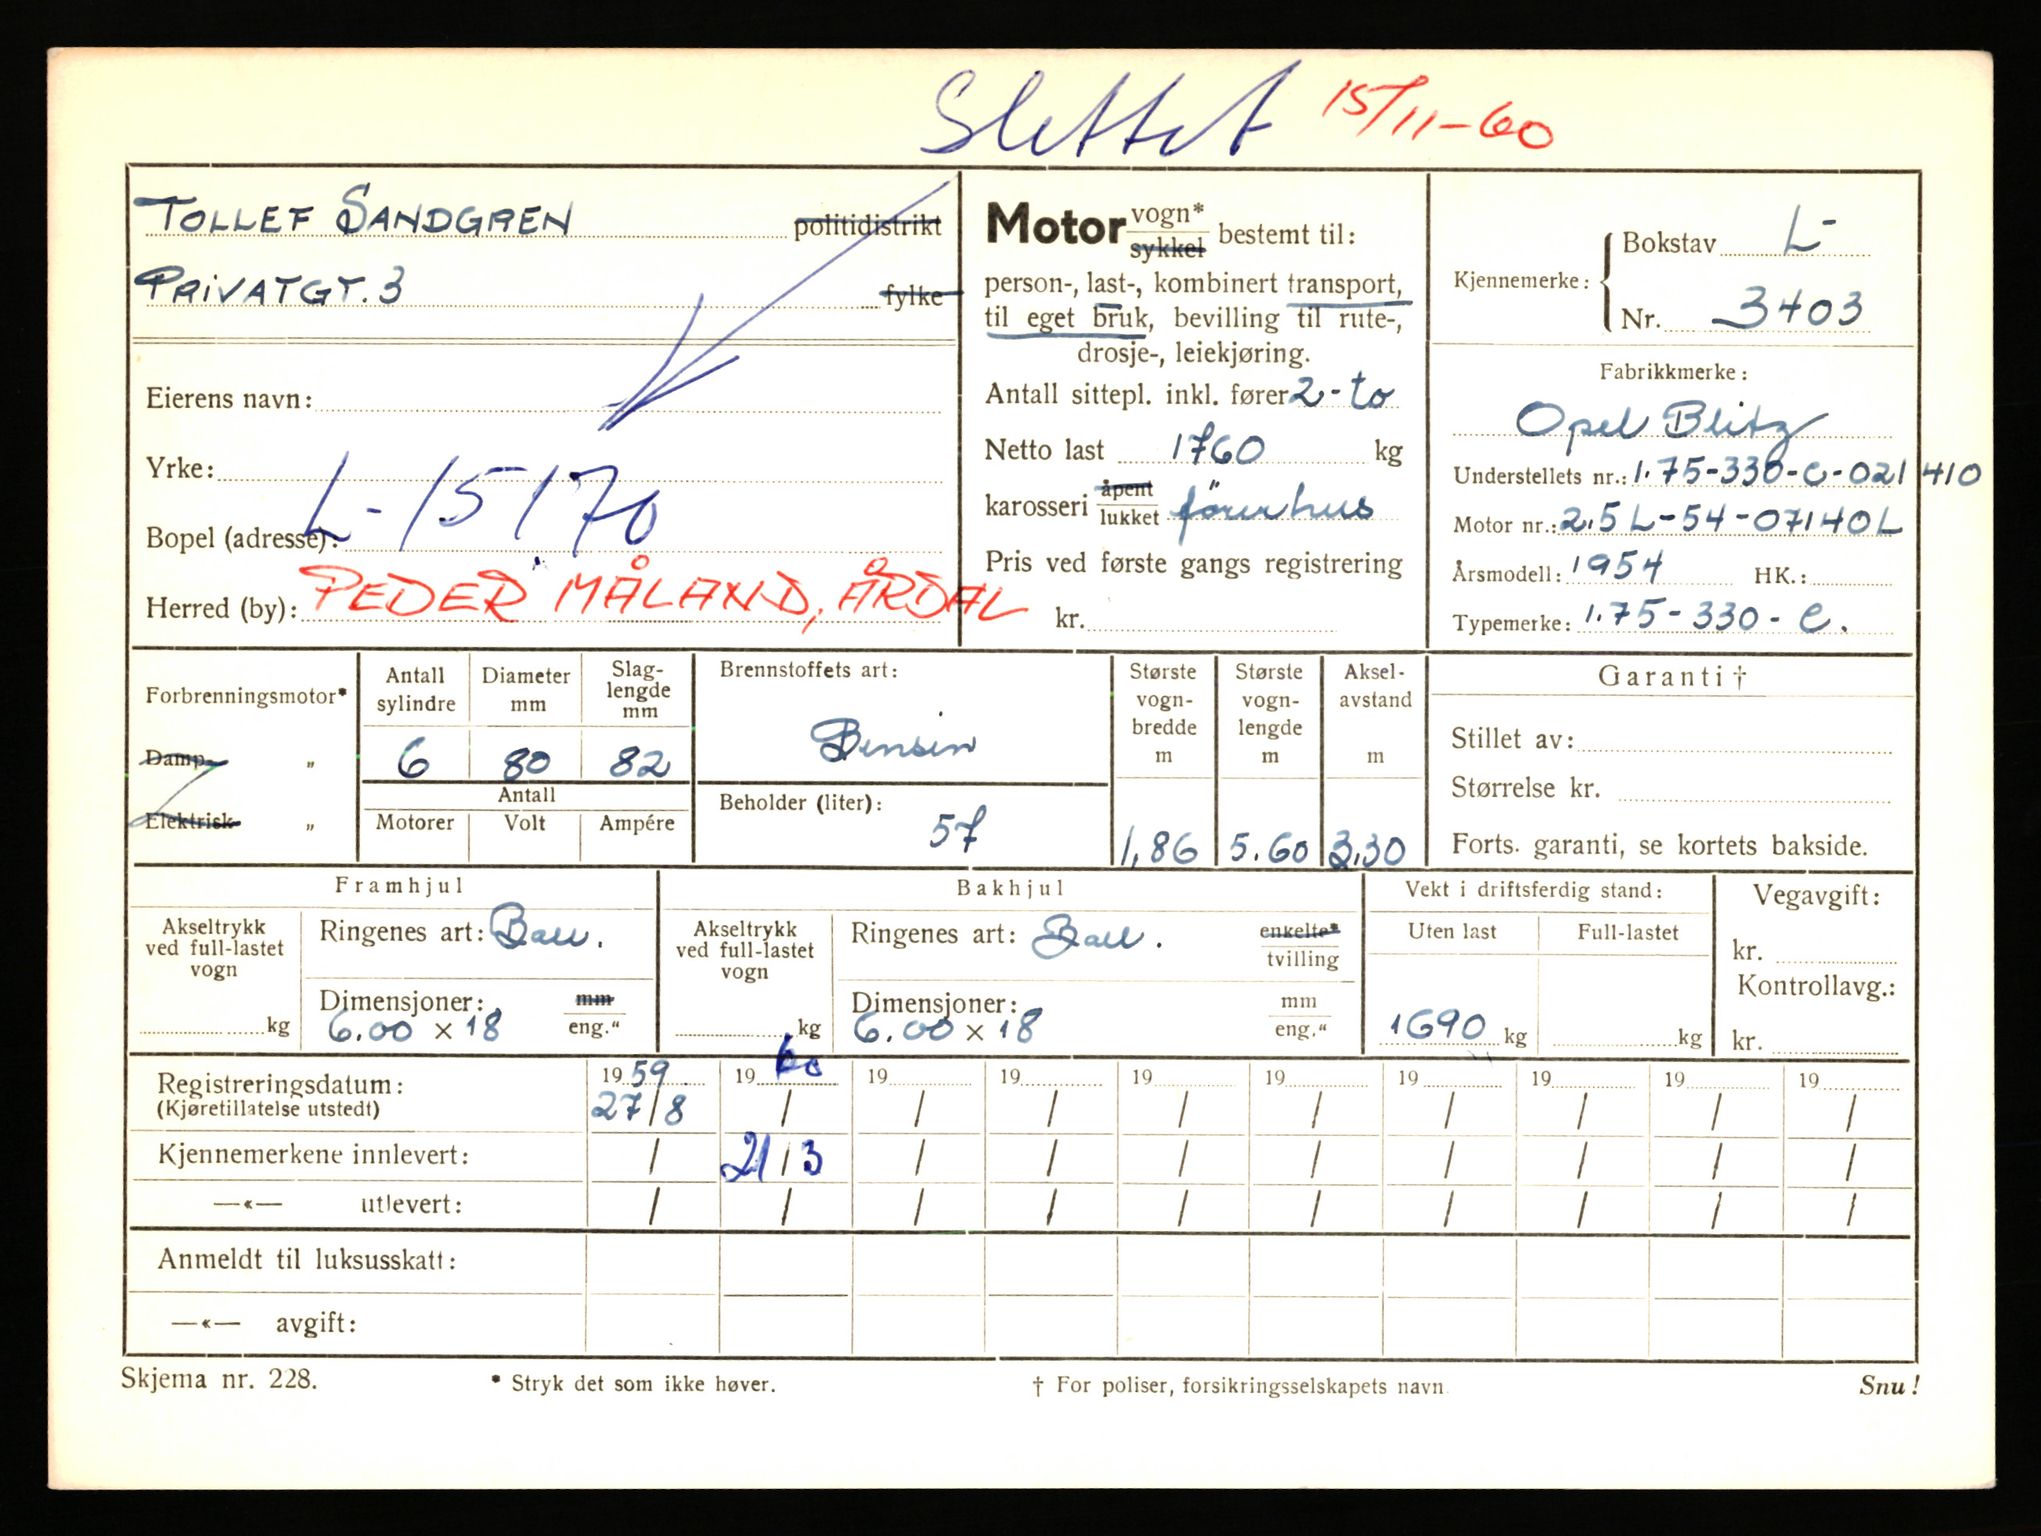 Slettet 15/11-60
TOLLEF SANDGREN politidistrikt
PRIVATGT. 3 fylke
Eierens navn:
Yrke:
L-15170
Bopel (adresse):
Herred (by): PEDER MÅLAND, ÅRDAL
Motor vogn* sykkel bestemt til:
person-, last-, kombinert transport,
til eget bruk, bevilling til rute-,
drosje-, leiekjøring.
Antall sittepl. inkl. fører 2-to
Netto last 1760 kg
karosseri åpent lukket førerhus
Pris ved første gangs registrering
kr.
Kjennemerke: Bokstav L-
Nr. 3403
Fabrikkmerke:
Opel Blitz
Understellets nr.: 1.75-330-C-021410
Motor nr.: 2,5L-54-07140L
Årsmodell: 1954 HK.:
Typemerke: 1.75-330-C.
Forbrenningsmotor*
Damp- „
Elektrisk „
Antall sylindre
6
Diameter mm
80
Slag-lengde mm
82
Antall
Motorer Volt Ampére
Brennstoffets art:
Bensin
Beholder (liter):
57
Største vogn-bredde m
1,86
Største vogn-lengde m
5.60
Aksel-avstand m
3.30
Garanti †
Stillet av:
Størrelse kr.
Forts. garanti, se kortets bakside.
Framhjul
Akseltrykk ved full-lastet vogn
kg
Ringenes art: Ball.
Dimensjoner: mm
6.00 × 18 eng."
Bakhjul
Akseltrykk ved full-lastet vogn
kg
Ringenes art: Ball. enkelte* tvilling
Dimensjoner: mm
6.00 × 18 eng."
Vekt i driftsferdig stand:
Uten last Full-lastet
1690 kg kg
Vegavgift:
kr.
Kontrollavg.:
kr.
Registreringsdatum: 1959 1960 19 19 19 19 19 19 19 19
(Kjøretillatelse utstedt) 27/8 / / / / / / / / /
Kjennemerkene innlevert: / 21/3 / / / / / / / /
—«— utlevert: / / / / / / / / / /
Anmeldt til luksusskatt:
—«— avgift:
Skjema nr. 228. * Stryk det som ikke høver. † For poliser, forsikringsselskapets navn Snu!